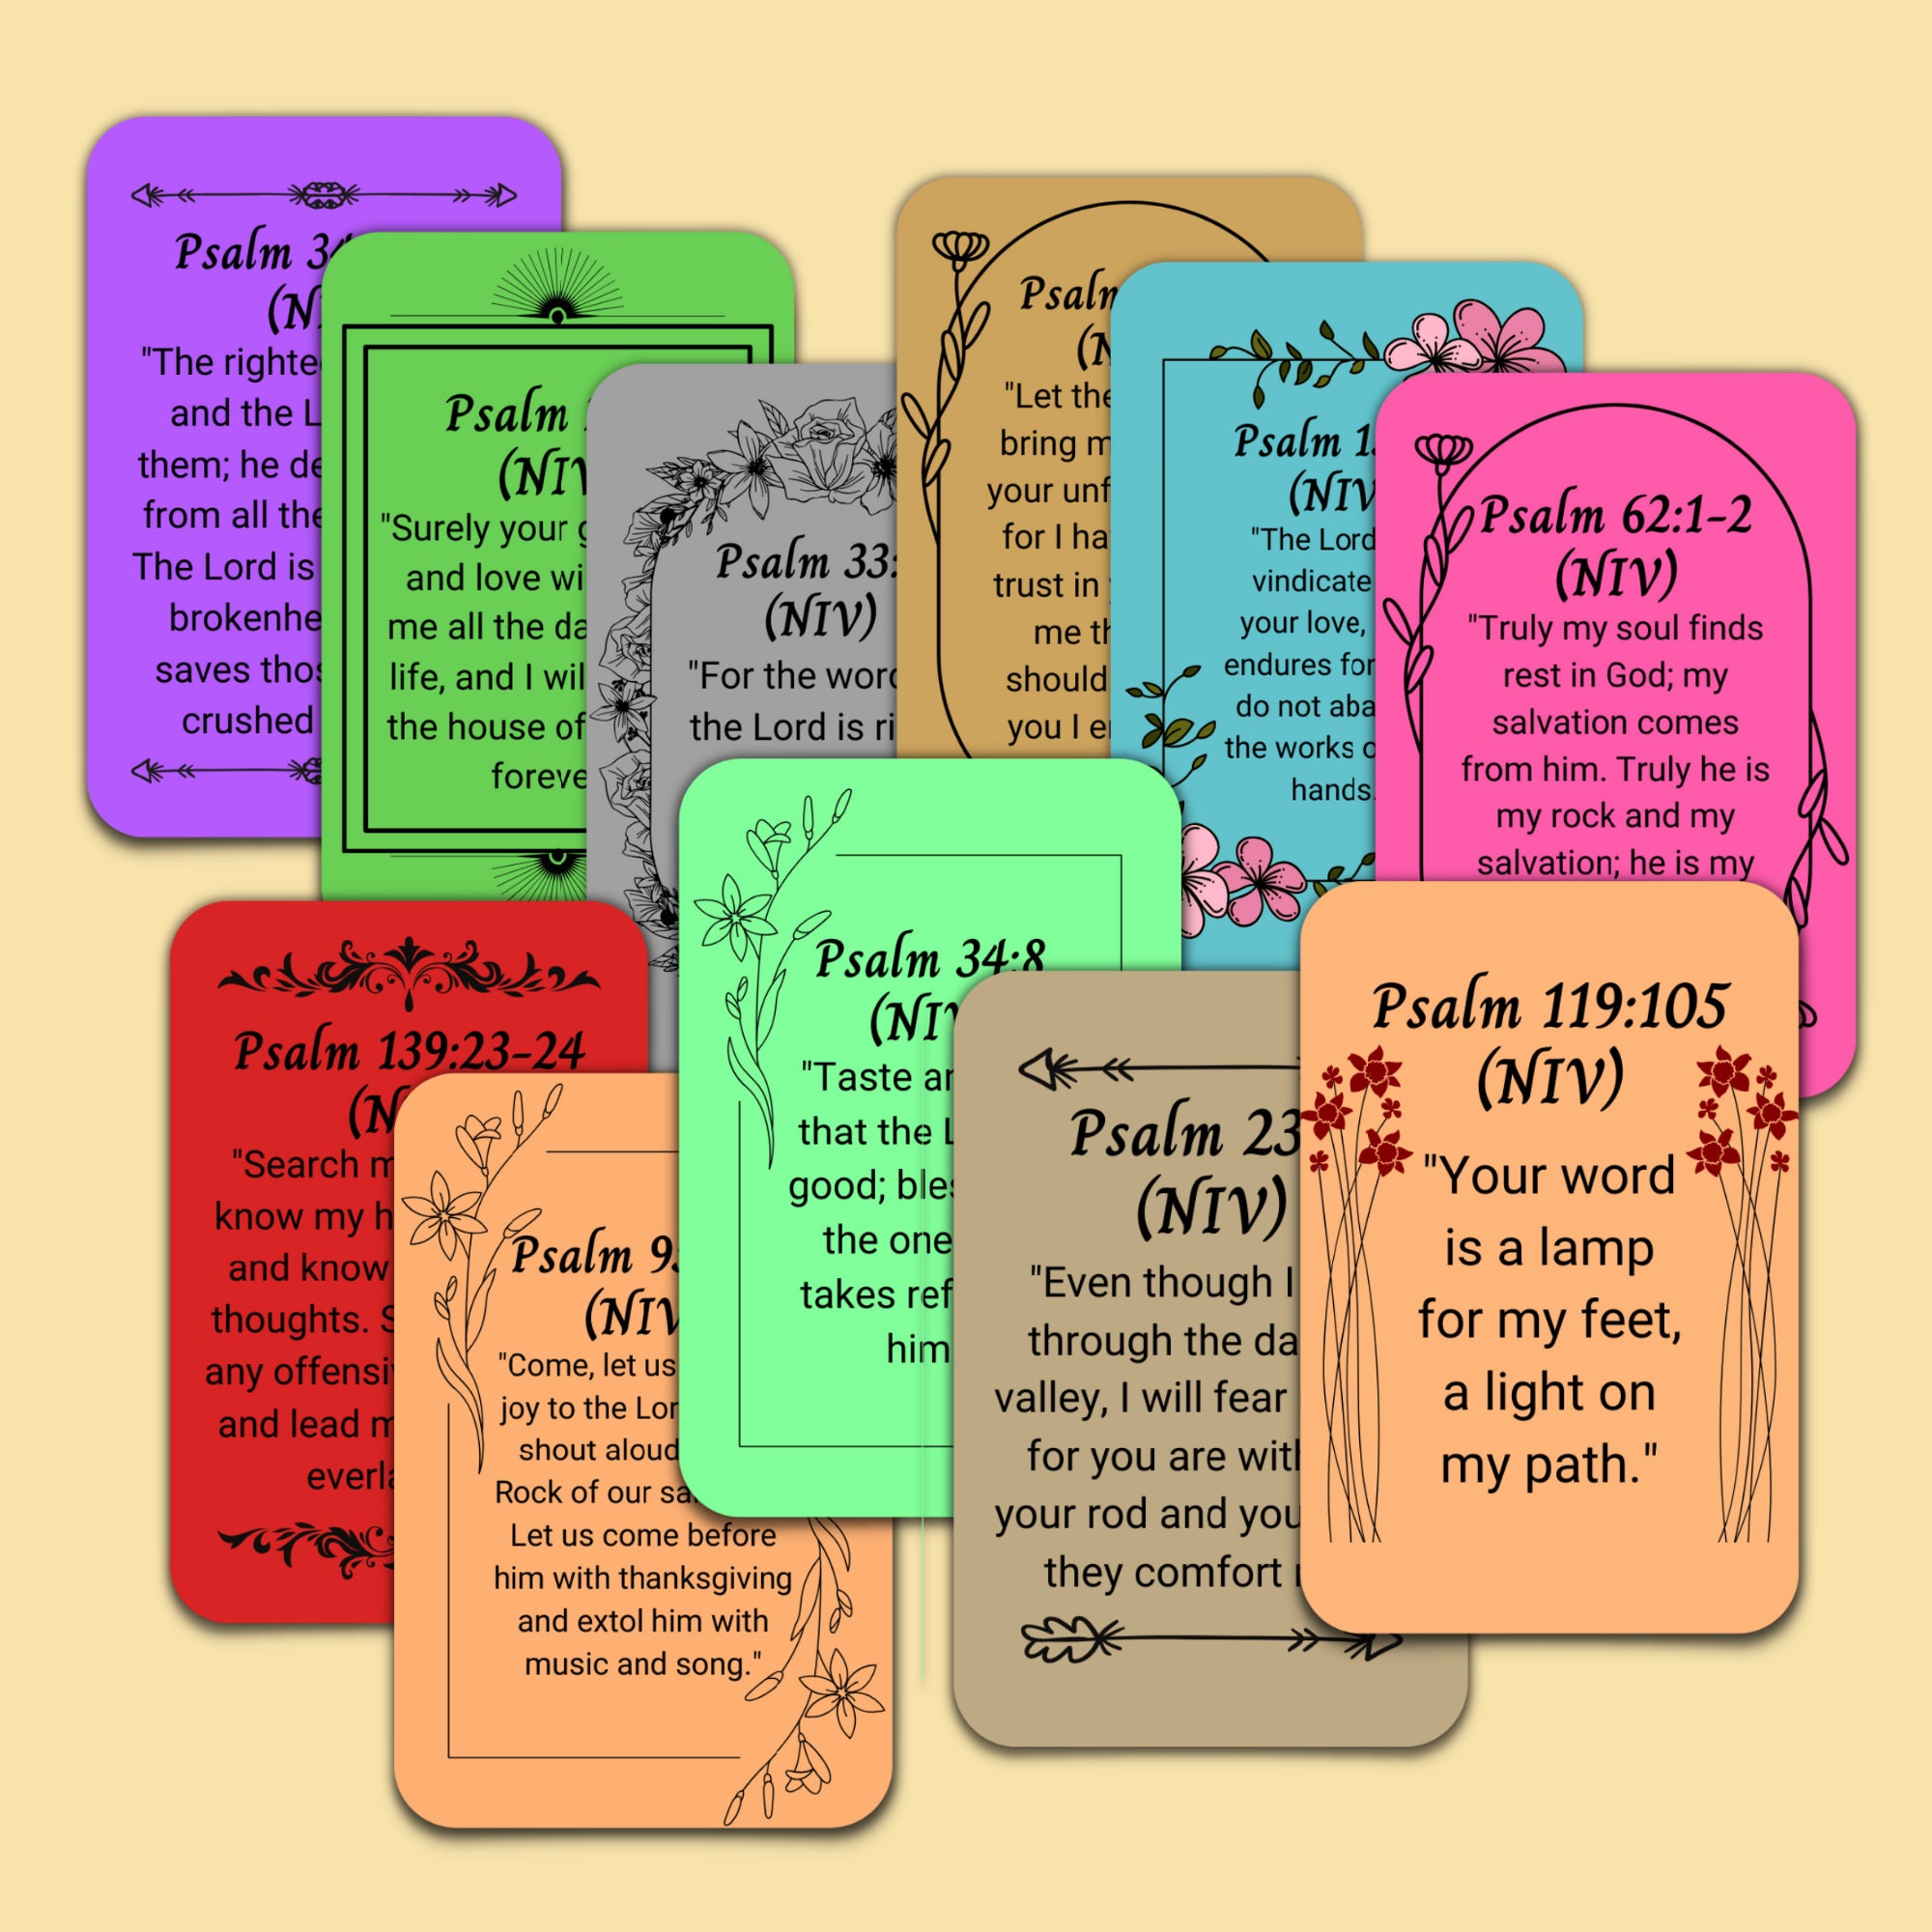 Psalm 34
(N
"The righte
and the L
them; he de
from all the
The Lord is
brokenhe
saves thos
crushed
Psalm
(NIV
"Surely your g
and love wi
me all the da
life, and I wil
the house of
foreve
Psalm 33:
(NIV)
"For the word
the Lord is ri
Psalm
(N
"Let the
bring m
your unf
for I ha
trust in
me th
should
you I e
Psalm 1
(NIV
"The Lord
vindicate
your love,
endures for
do not aba
the works o
hands.
Psalm 62:1-2
(NIV)
"Truly my soul finds
rest in God; my
salvation comes
from him. Truly he is
my rock and my
salvation; he is my
Psalm 139:23-24
(N
"Search m
know my h
and know
thoughts. S
any offensi
and lead m
everla
Psalm 9
(NIV
"Come, let us
joy to the Lor
shout aloud
Rock of our sa
Let us come before
him with thanksgiving
and extol him with
music and song."
Psalm 34:8
(NIV
"Taste an
that the L
good; bles
the one
takes ref
him
Psalm 23
(NIV)
"Even though I
through the da
valley, I will fear
for you are with
your rod and you
they comfort
Psalm 119:105
(NIV)
"Your word
is a lamp
for my feet,
a light on
my path."